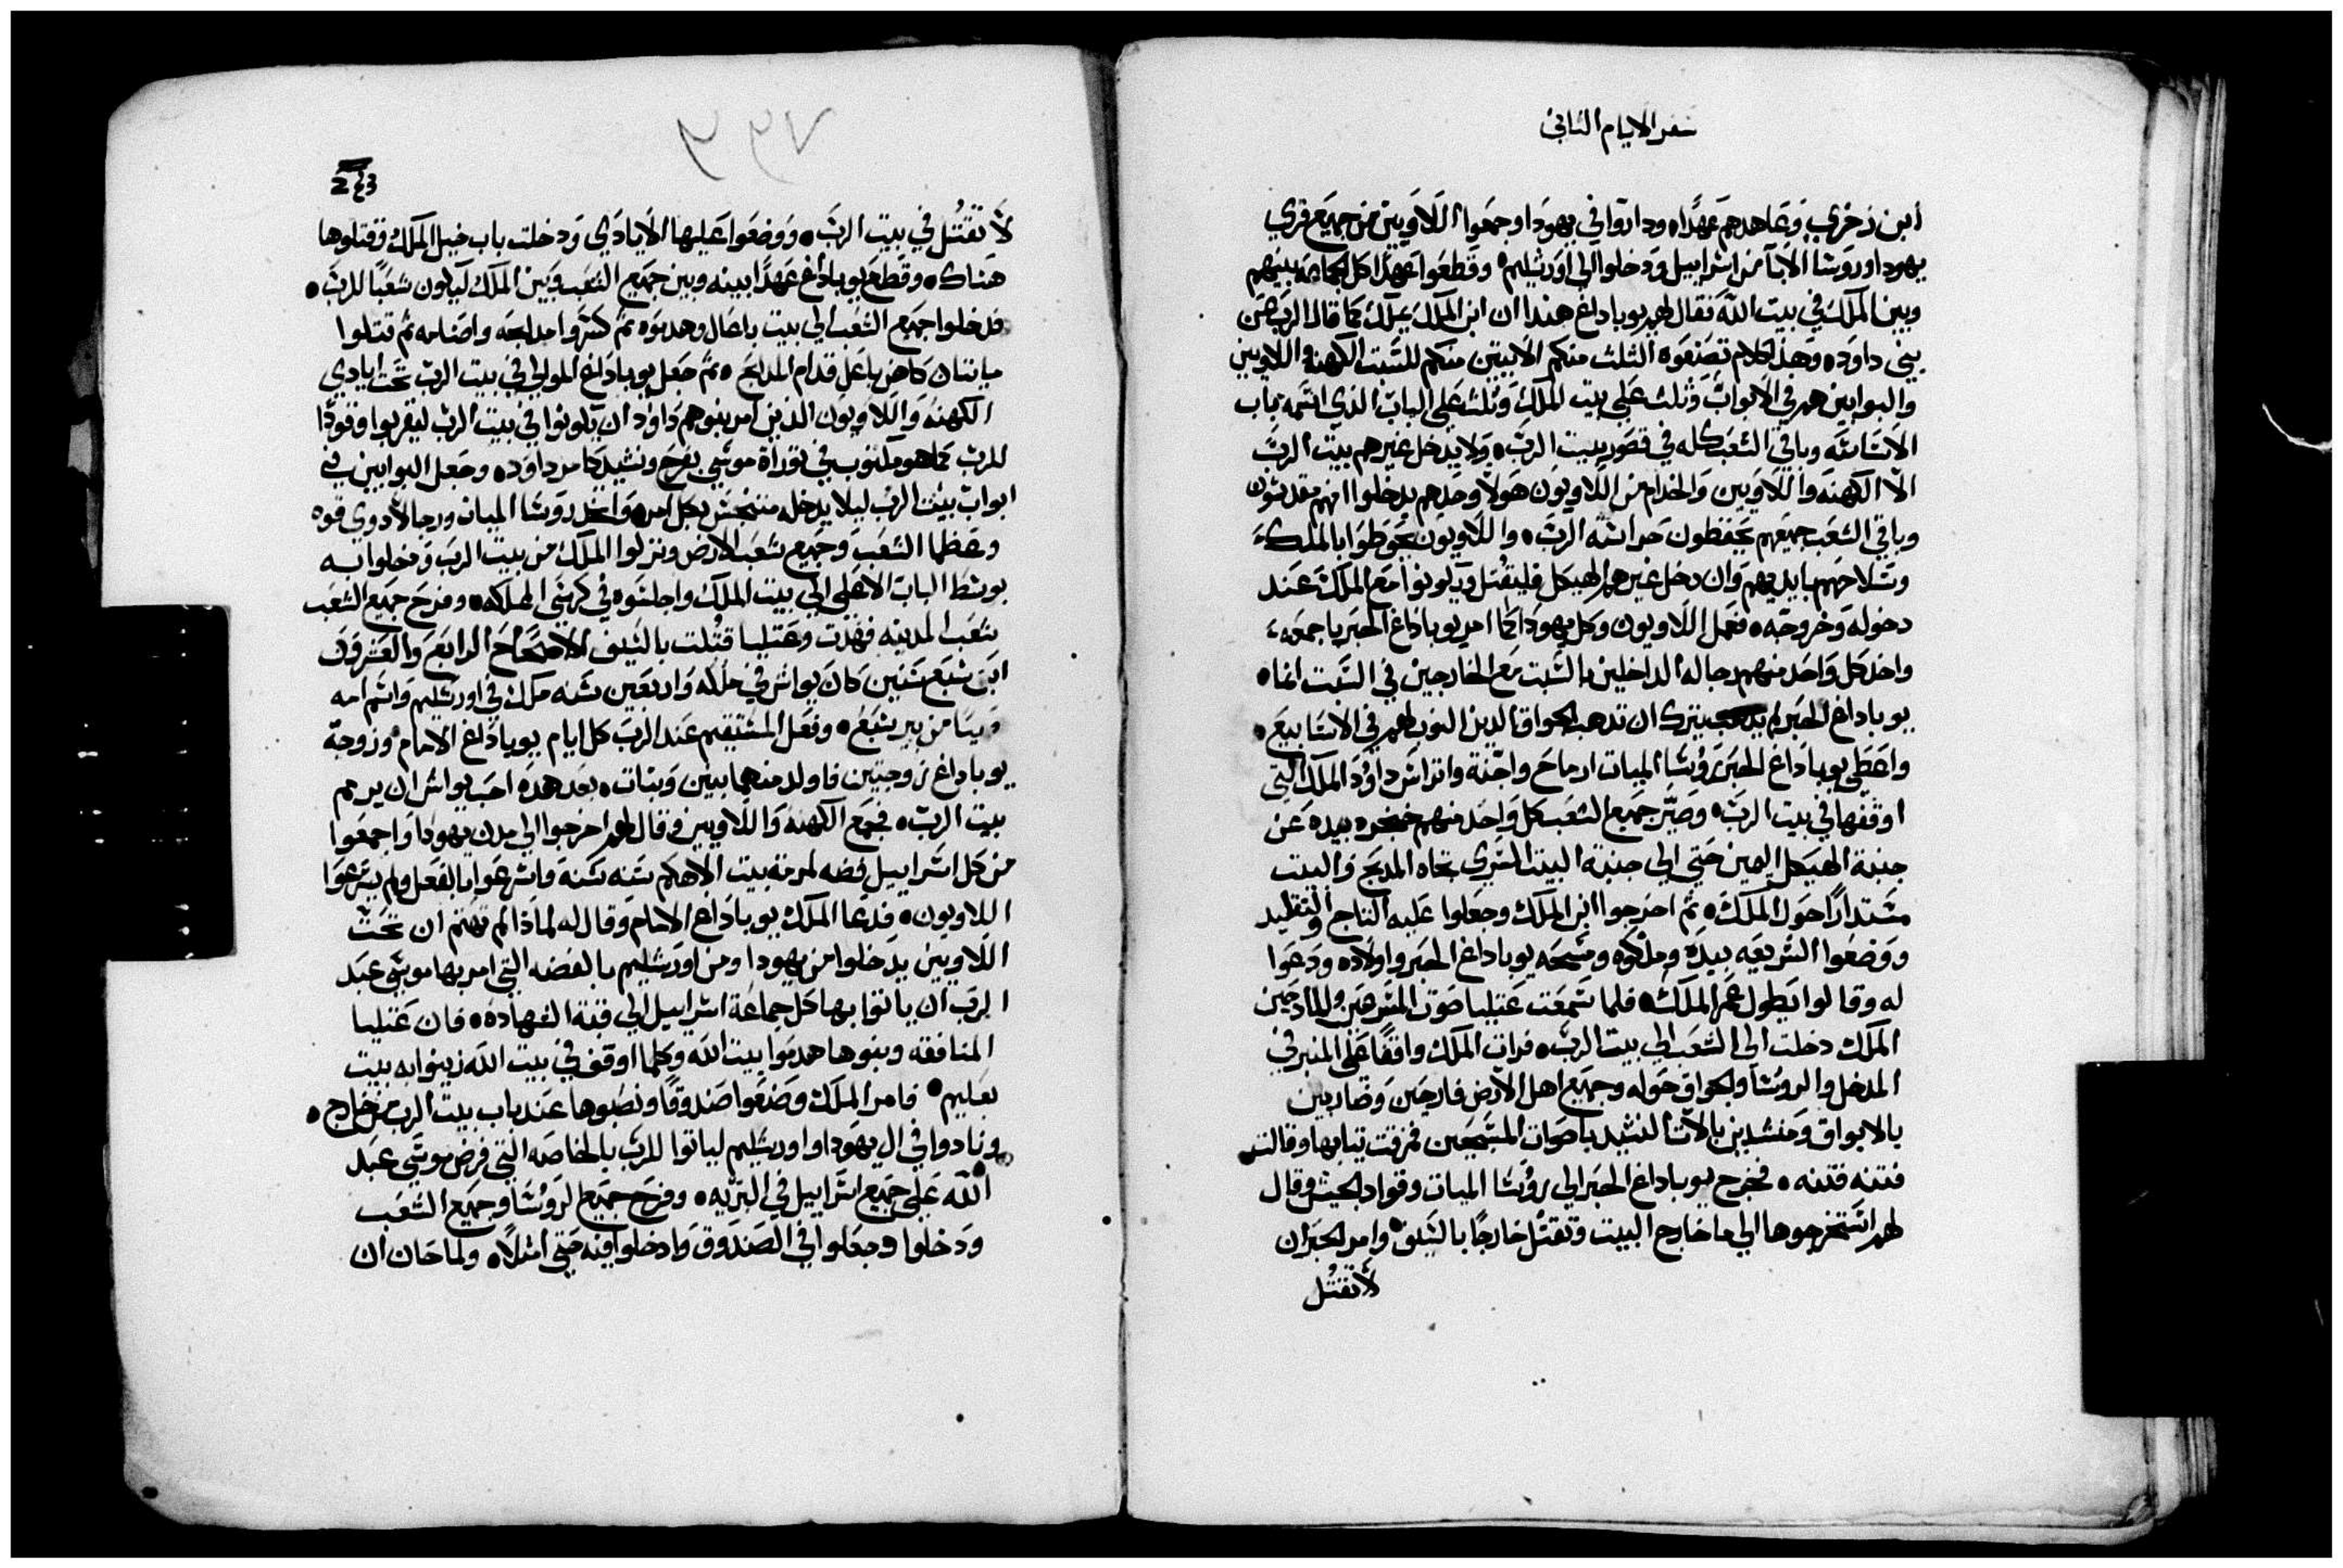 سفر الايام الثاني
ابن زخري وعاهدهم عهدا وداروا في يهودا وجمعوا اللاويين من جميع قري
يهودا وروسا الابا من اسراييل ودخلوا الي اورشليم وقطعوا عهدا كل الجماعه بينهم
وبين الملك في بيت الله فقال لهم يوباداغ هذا ان ابن الملك يملك كما قال الرب من
بني داود وهذا الكلام تصنعوه الثلث منكم الاتيين منكم للسبت الكهنه واللاويين
والبوابين هم في الابواب وثلث علي بيت الملك وثلث علي الباب الذي اسمه باب
الاساسه وباقي الشعب كله في قصور بيت الرب ولا يدخل غيرهم بيت الرب
الا الكهنه واللاويين والخدام من اللاويون هولا وحدهم يدخلوا انهم مقدسون
وباقي الشعب جميعهم يحفظون حراسه الرب واللاويون يحوطوا بالملك
وسلاحهم بايديهم وان دخل غيرهم الهيكل فليقتل ويكونوا مع الملك عند
دخوله وخروجه ففعل اللاويون وكل يهودا كما امر يوباداغ الحبر باجمعه
واخد كل واحد منهم رجاله الداخلين بالسبت مع الخارجين في السبت انما
يوباداغ الحبر لم يترك ان تدهب الجواق الدين النوب لهم في الاسابيع
واعطي يوباداغ الحبر روسا الميات ارماح واجنة واتراس داود الملك التي
اوقفها في بيت الرب وصير جميع الشعب كل واحد منهم خنجره بيده عن
جنبة الهيكل اليمين حتي الي جنبة البيت اليسري تجاه المدبح والبيت
مستدارا حول الملك ثم اخرجوا ابن الملك وجعلوا عليه التاج والتقليد
ووضعوا الشريعه بيده وملكوه ومسحه يوباداغ الحبر واولاده ودعوا
له وقالوا يطول عمر الملك فلما سمعت عتليا صوت المسرعين والمادحين
الملك دخلت الي الشعب الي بيت الرب فرات الملك واقفا علي المنبر في
المدخل والروسا والجواق حوله وجميع اهل الارض فارحين وضاربين
بالابواق ومنشدين بالات النشيد باصوات المسبحين فمزقت تيابها وقالت
فتنه فتنه فخرج يوباداغ الحبر الي روسا الميات وقواد الجيش وقال
لهم استخرجوها الي ما خارج البيت وتقتل خارجا بالسيف وامر الحبر ان
لا تقتل
243
لا تقتل في بيت الرب ووضعوا عليها الايادي ودخلت باب خيل الملك وقتلوها
هناك وقطع يوباداغ عهدا بينه وبين جميع الشعب وبين الملك ليكون شعبا للرب
فدخلوا جميع الشعب الي بيت باعال وهدموه ثم كسروا مدابحه واصنامه ثم قتلوا
ماتنان كاهن باعل قدام المدابح ثم جعل يوباداغ المولي في بيت الرب تحت ايادي
الكهنه واللاويون الذين امر بنوهم داود ان يكونوا في بيت الرب ليقربوا وقودا
للرب كما هو مكتوب في توراة موسي بفرح ونشيد كامر داود وجعل البوابين في
ابواب بيت الرب ليلا يدخله متنجس بكل امر واخد روسا الميات ورجالا دوي قوه
وعظما الشعب وجميع شعب الارض ونزلوا الملك من بيت الرب ودخلوا به
بوسط الباب الاعلي الي بيت الملك واجلسوه في كرسي المملكه وفرح جميع الشعب
شعب المدينه فهدت وعتليا قتلت بالسيف الاصحاح الرابع والعشرون
ابن سبع سنين كان يواش في ملكه واربعين سنه ملك في اورشليم واسم امه
من بير سبع وفعل المستقيم عند الرب كل ايام يوباداغ الامام وزوجة
يوباداغ زوجتين فاولد منهما بنين وبنات بعد هده احب يواش ان يرمم
بيت الرب فجمع الكهنه واللاويين وقال لهم اخرجوا الي مدن يهودا واجمعوا
من كل اسراييل فضه لمرمة بيت الاهكم سنه سنه واسرعوا بالفعل ولم يسرعوا
اللاويون فدعا الملك يوباداغ الامام وقال له لماذا لم تهتم ان تحت
اللاويين يدخلوا من يهودا ومن اورشليم بالفضه التي امر بها موسي عبد
الرب ان ياتوا بها كل جماعة اسراييل الي قبة الشهاده فان عتليا
المنافقه وبنوها هدموا بيت الله وكلما اوقف في بيت الله زينوا به بيت
بعليم فامر الملك وصنعوا صندوقا ونصبوها عند باب بيت الرب من خارج
ونادوا في ال يهودا واورشليم لياتوا للرب بالخاصه التي فرض موسي عبد
الله علي جميع اسراييل في البريه وفرح جميع الروسا وجميع الشعب
ودخلوا وجعلوا في الصندوق وادخلوا فيه حتي امتلا ولما حان ان